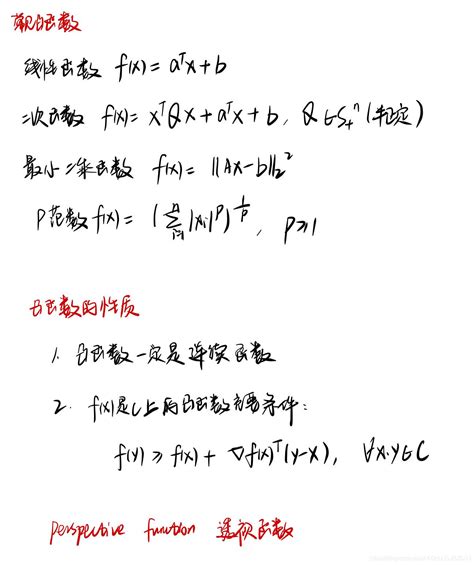 常见凸函数
线性函数 f(x) = aᵀx + b
二次函数 f(x) = xᵀQx + aᵀx + b, Q∈S₊ⁿ (半正定)
最小二乘函数 f(x) = ||Ax-b||₂²
P范数 f(x) = (∑ᵢ₌₁ⁿ|xᵢ|ᵖ)^(1/p), p≥1
凸函数的性质
1. 凸函数一定是连续函数
2. f(x)是C上的凸函数充要条件:
f(y) ≥ f(x) + ∇f(x)ᵀ(y-x), ∀x,y∈C
perspective function 透视函数